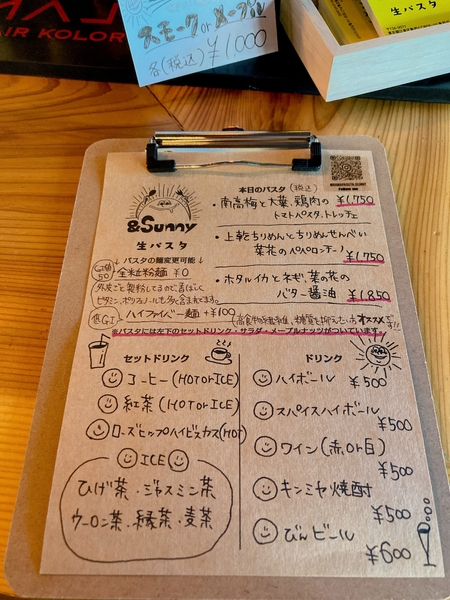 スモーク or メープル
各(税込) ¥1,000
生パスタ
AIR KOLOR
&Sunny
生パスタ
Follow me
本日のパスタ (税込)
・南高梅と大葉、鶏肉の ¥1,750
トマトパスタ、トレッチェ
・上乾ちりめんとちりめんせんべい
菜花のペペロンチーノ ¥1,750
・ホタルイカとネギ、菜の花の
バター醤油 ¥1,850
↓パスタの麺変更可能↓
GI値50
全粒粉麺 ¥0
外皮ごと製粉してるので香ばしく
ビタミン、ポリフェノールも多く含まれてます。
低GI
ハイファイバー麺 +¥100
(高食物繊維、糖質を抑えたい方オススメです!!)
※パスタには左下のセットドリンク・サラダ・メープルナッツがついています。
セットドリンク
コーヒー (HOT or ICE)
紅茶 (HOT or ICE)
ローズヒップハイビスカス (HOT)
ICE
ひげ茶・ジャスミン茶
ウーロン茶・緑茶・麦茶
ドリンク
ハイボール
¥500
スパイスハイボール
¥500
ワイン (赤 or 白)
¥500
キンミヤ焼酎
¥500
びんビール
¥600